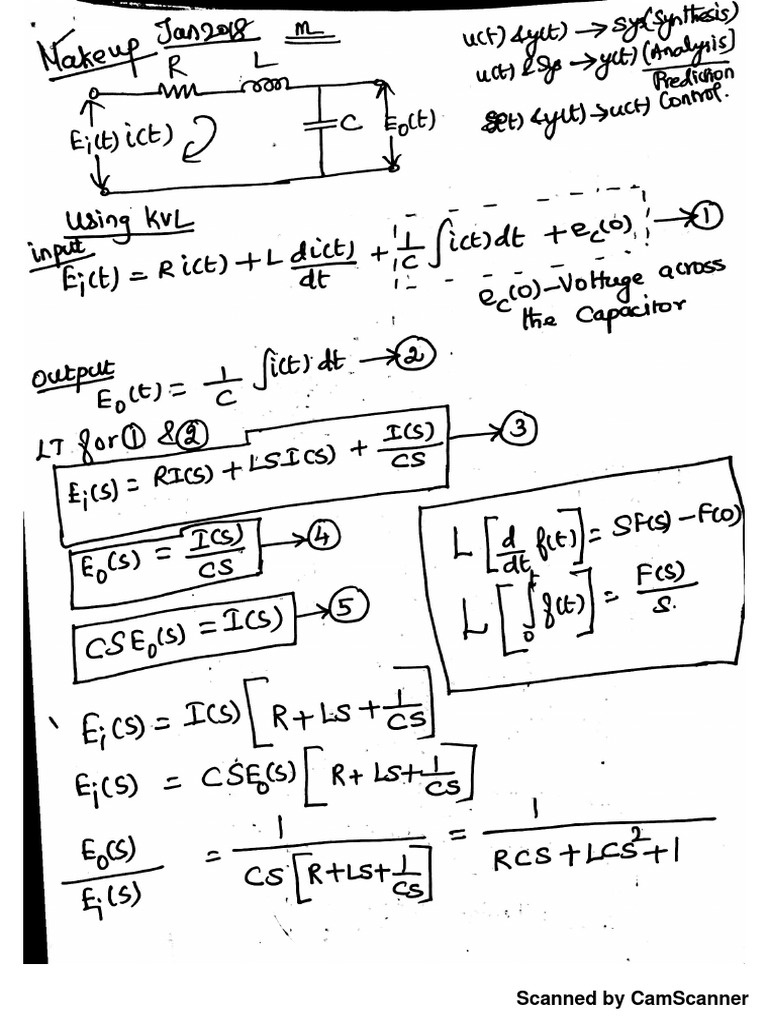 Makeup Jan 2018 m
u(t) & y(t) → sys (Synthesis)
u(t) & Sys → y(t) (Analysis]
Prediction
& y(t) → u(t) Control.
R L
E_i(t) i(t) C E_o(t)
Using KVL
input
E_i(t) = R i(t) + L di(t)/dt + 1/C ∫i(t) dt + e_c(0) → ①
e_c(0) - Voltage across
the Capacitor
output
E_o(t) = 1/C ∫i(t) dt → ②
LT for ① & ②
E_i(s) = RI(s) + LSI(s) + I(s)/CS → ③
E_o(s) = I(s)/CS → ④
CSE_o(s) = I(s) → ⑤
L [d/dt f(t)] = SF(s) - F(0)
L [∫_0^t f(t)] = F(s)/S.
E_i(s) = I(s) [R + LS + 1/CS]
E_i(s) = CSE_o(s) [R + LS + 1/CS]
E_o(s)/E_i(s) = 1/CS[R + LS + 1/CS] = 1/RCS + LCS² + 1
Scanned by CamScanner